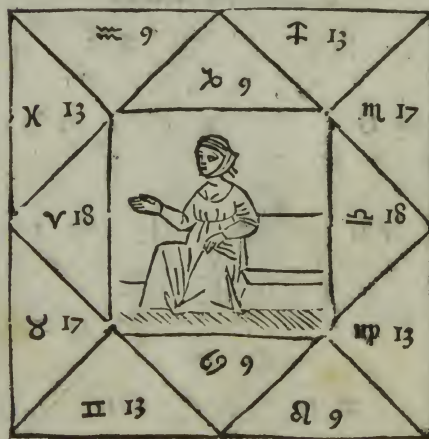 ♒ 9 ♐ 13
♑ 9
♓ 13 ♏ 17
♈ 18 ♎ 18
♉ 17 ♍ 13
♋ 9
♊ 13 ♌ 9